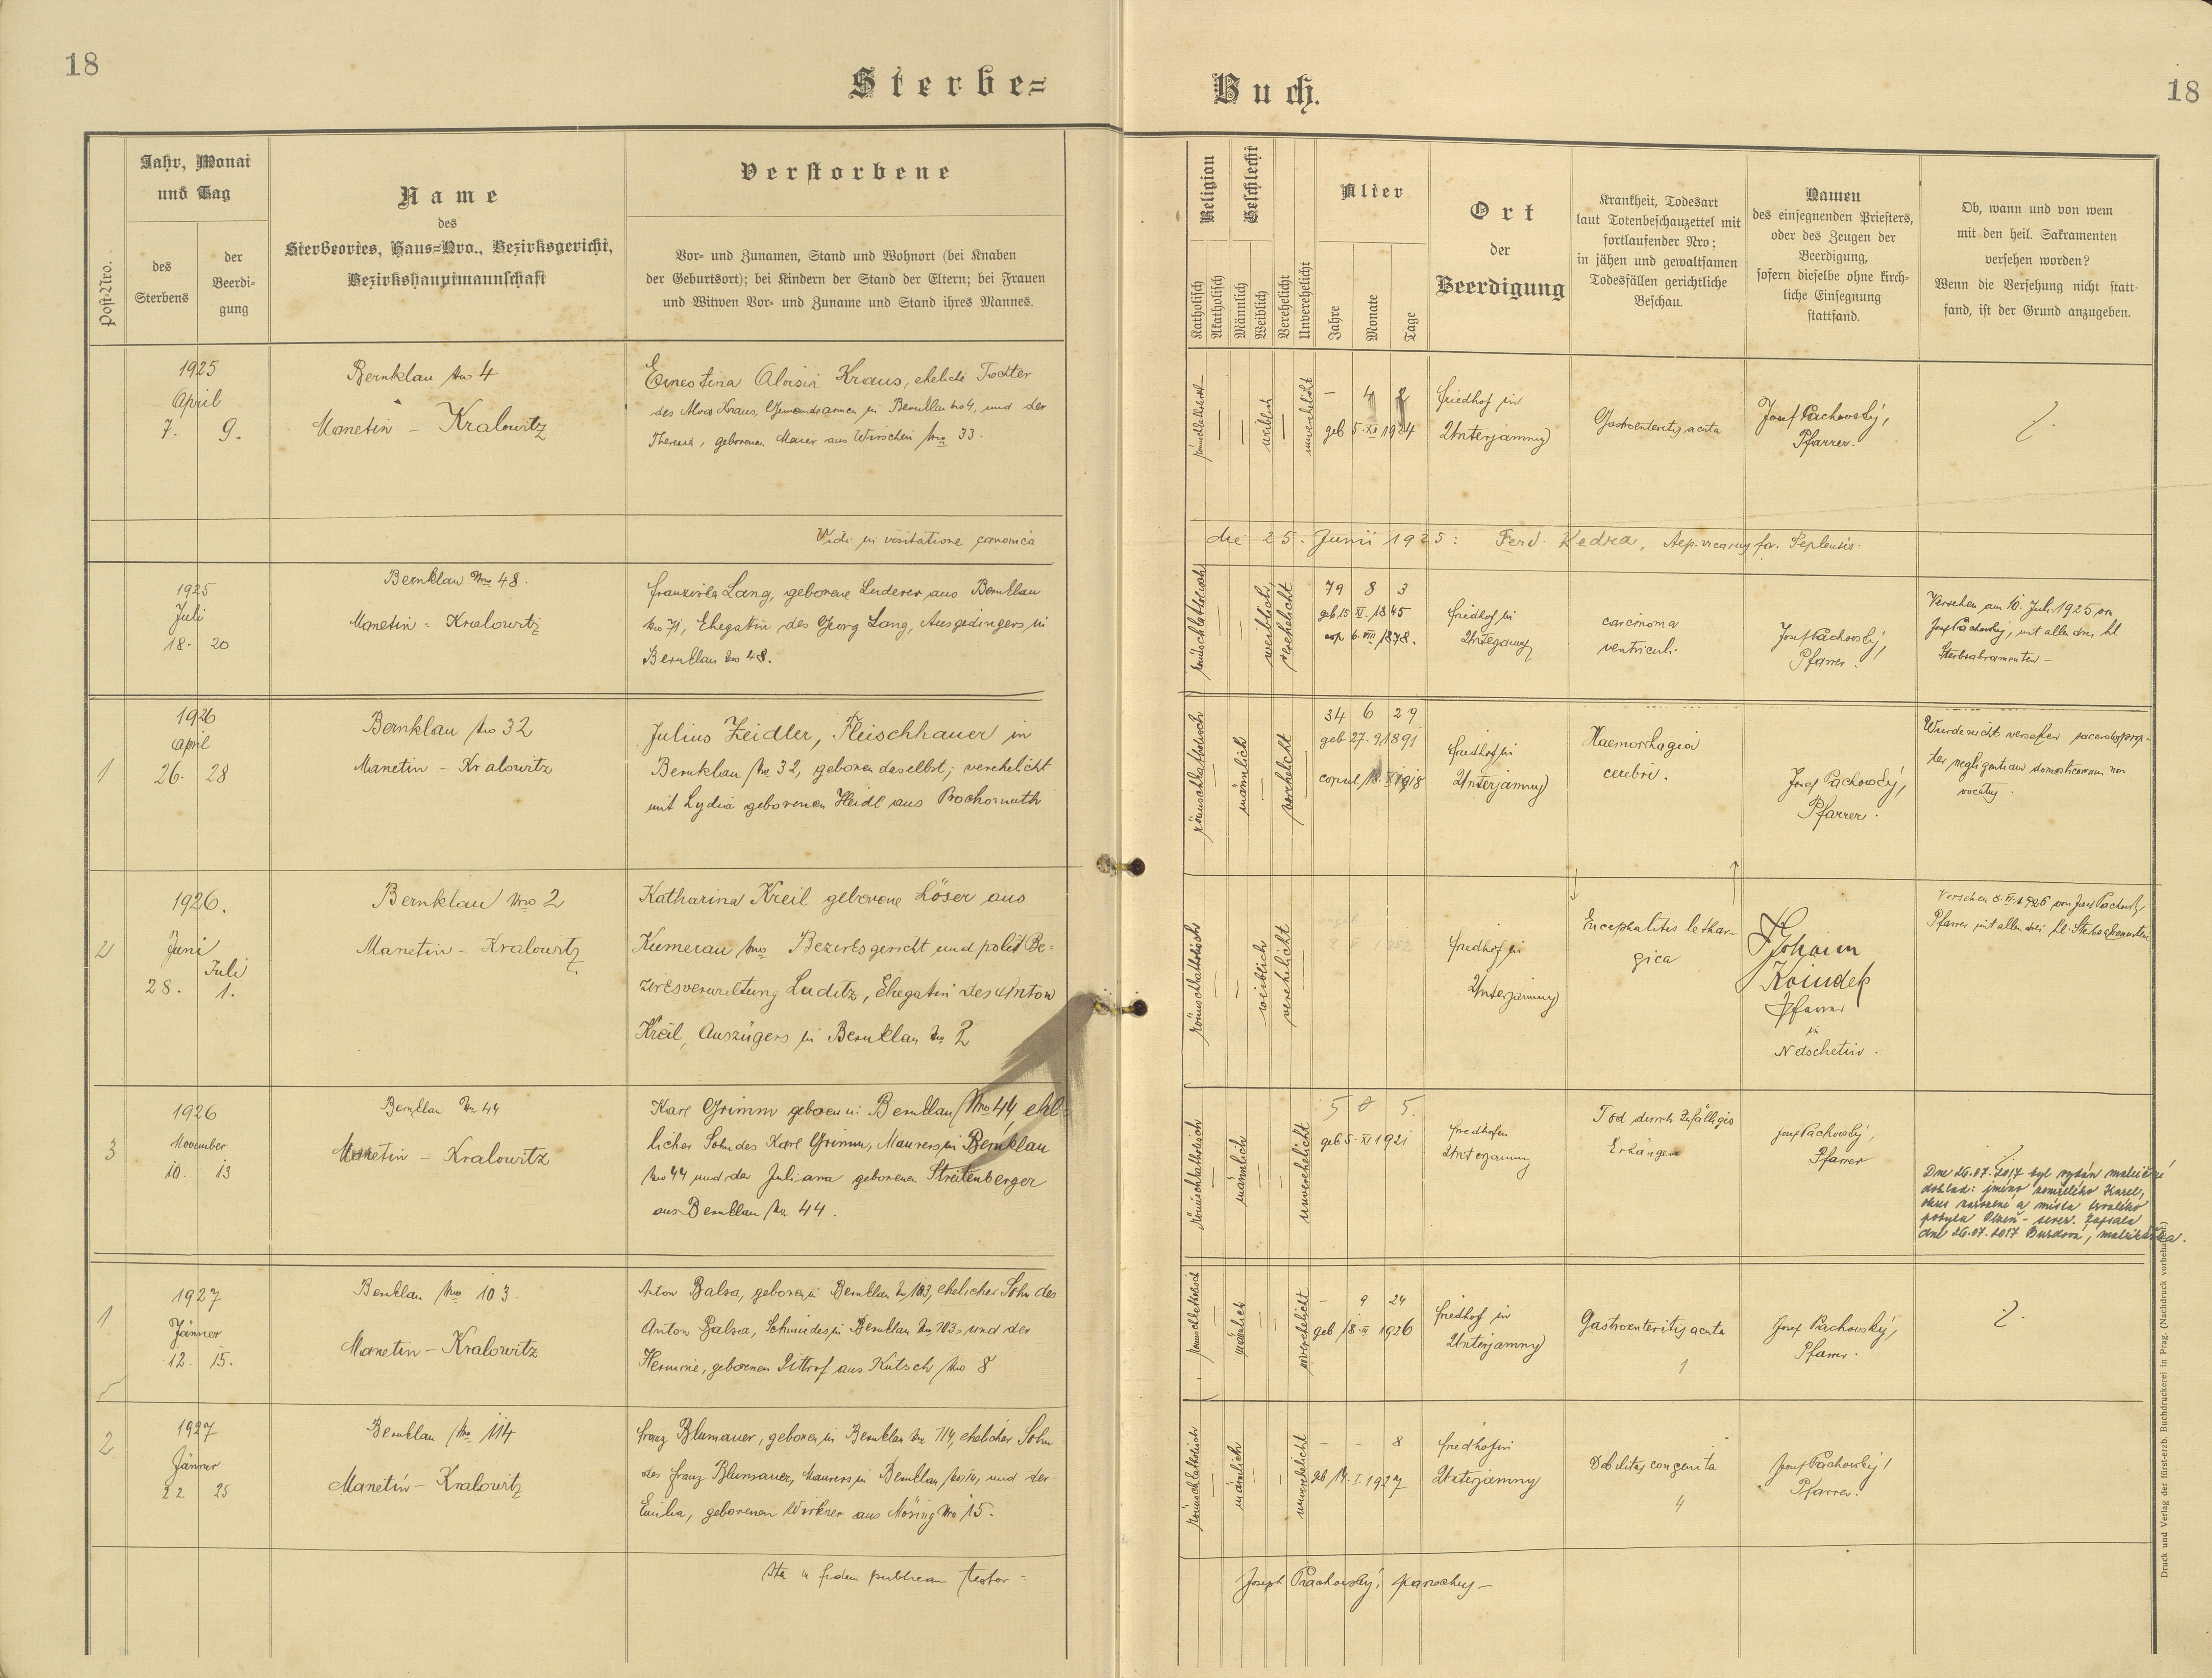 18
18
Sterbe=
Buch.
Post-Nro.
Jahr, Monat
und Tag
des
Sterbens
der
Beerdi-
gung
Name
des
Sterbeortes, Haus=Nro., Bezirksgericht,
Bezirkshauptmannschaft
Verstorbene
Vor- und Zunamen, Stand und Wohnort (bei Knaben
der Geburtsort); bei Kindern der Stand der Eltern; bei Frauen
und Witwen Vor- und Zuname und Stand ihres Mannes.
Religion
Katholisch
Akatholisch
Geschlecht
Männlich
Weiblich
Verehelicht
Unverehelicht
Alter
Jahre
Monate
Tage
Ort
der
Beerdigung
Krankheit, Todesart
laut Totenbeschauzettel mit
fortlaufender Nro;
in jähen und gewaltsamen
Todesfällen gerichtliche
Beschau.
Namen
des einsegnenden Priesters,
oder des Zeugen der
Beerdigung,
sofern dieselbe ohne kirch-
liche Einsegnung
stattfand.
Ob, wann und von wem
mit den heil. Sakramenten
versehen worden?
Wenn die Versehung nicht statt-
fand, ist der Grund anzugeben.
1925
April
7. 9.
Bernklau Nro 4
Manetin - Kralowitz
Ernestina Aloisia Kraus, eheliche Tochter
des Alois Kraus, in Bernklau Nro 4, und der
Theresia, geborenen Maier aus Wirschin Nro 33.
römischkatholisch
weiblich
unverehelicht
- 4 2
geb 5. XII 1924
Friedhof in
Unterjamny
Gastroenteritis acuta
Josef Pachovský,
Pfarrer.
Vidi in visitatione canonica
die 25. Junii 1925: Ferd. Kedra, Aep. vicarius for. Teplensis.
1925
Juli
18. 20
Bernklau Nro 48.
Manetin - Kralowitz
Franziska Lang, geborene Luderer aus Bernklau
Nro 71, Ehegatin des Georg Lang, Ausgedingers in
Bernklau Nro 48.
römischkatholisch
weiblich
verehelicht
79 8 3
geb 15. XI. 1845
cop. 6. VIII 1878.
Friedhof in
Unterjamny
carcinoma
ventriculi.
Josef Pachovský,
Pfarrer.
Versehen am 10. Juli 1925 von
Josef Pachovský, mit allen drei hl
Sterbsakramenten -
1
1926
April
26. 28
Bernklau Nro 32
Manetin - Kralowitz
Julius Zeidler, Fleischhauer in
Bernklau Nro 32, geboren daselbst, verehelicht
mit Lydia geborenen Heidl aus Prochomuth
römischkatholisch
männlich
verehelicht
34 6 29
geb 27. 9 1891
copul 18. X 1918
Friedhof in
Unterjamny
Haemorrhagia
cerebri.
Josef Pachovský,
Pfarrer.
Wurde nicht versehen sacerdos prop-
ter negligentiam domesticorum non
vocatus.
2
1926.
Juni
Juli
28. 1.
Bernklau Nro 2
Manetin - Kralowitz
Katharina Kreil geborene Löser aus
Kumerau Nro Bezirksgericht und polit Be=
zirksverwaltung Luditz, Ehegatin des Anton
Kreil, Auszügers in Bernklau Nro 2
römischkatholisch
weiblich
verehelicht
Friedhof in
Unterjamny
Encephalitis lethar-
gica
Johann
Pfarrer
in
Netschetin.
Versehen 8. VI. 1926 von Josef Pachovský,
Pfarrer mit allen drei hl. Sterbsakramenten
3
1926
November
10. 13
Bernklau Nro 44
Manetin - Kralowitz
Karl Grimm geboren in Bernklau Nro 44, ehe=
licher Sohn des Karl Grimm, Maurers in Bernklau
Nro 44 und der Juliana geborenen Streitenberger
aus Bernklau Nro 44.
römischkatholisch
männlich
unverehelicht
5 0 5.
geb 5. XI 1921
Friedhof in
Unterjamny
Tod durch zufälliges
Erhängen
Josef Pachovský,
Pfarrer
Dne 26.07.2017 byl vydán matriční
doklad: jméno zemřelého Karel,
okres narození a místa trvalého
pobytu Plzeň - sever. Zapsala
dne 26.07.2017 matrikářka.
1
1927
Jänner
12. 15.
Bernklau Nro 103.
Manetin - Kralowitz
Anton Balsa, geboren in Bernklau Nro 103, ehelicher Sohn des
Anton Balsa, Schmiedes in Bernklau Nro 103, und der
Hermine, geborenen Pittrof aus Kutsch Nro 8
römischkatholisch
männlich
unverehelicht
- 9 24
geb 18. III 1926
Friedhof in
Unterjamny
Gastroenteritis acuta
1
Josef Pachovský,
Pfarrer.
2
1927
Jänner
22. 25
Bernklau Nro 114
Manetin - Kralowitz
Franz Blumauer, geboren in Bernklau Nro 114, ehelicher Sohn
des Franz Blumauer, Maurers in Bernklau Nro 114, und der
Emilia, geborenen Wirkner aus Mösing Nro 15.
römischkatholisch
männlich
unverehelicht
- - 8
geb 14. I. 1927
Friedhof in
Unterjamny
Debilitas congenita
4
Josef Pachovský,
Pfarrer.
Ita in fidem publicam testor -
Joseph Pachovský, parochus -
Druck und Verlag der fürsterzb. Buchdruckerei in Prag. (Nachdruck vorbehalten.)